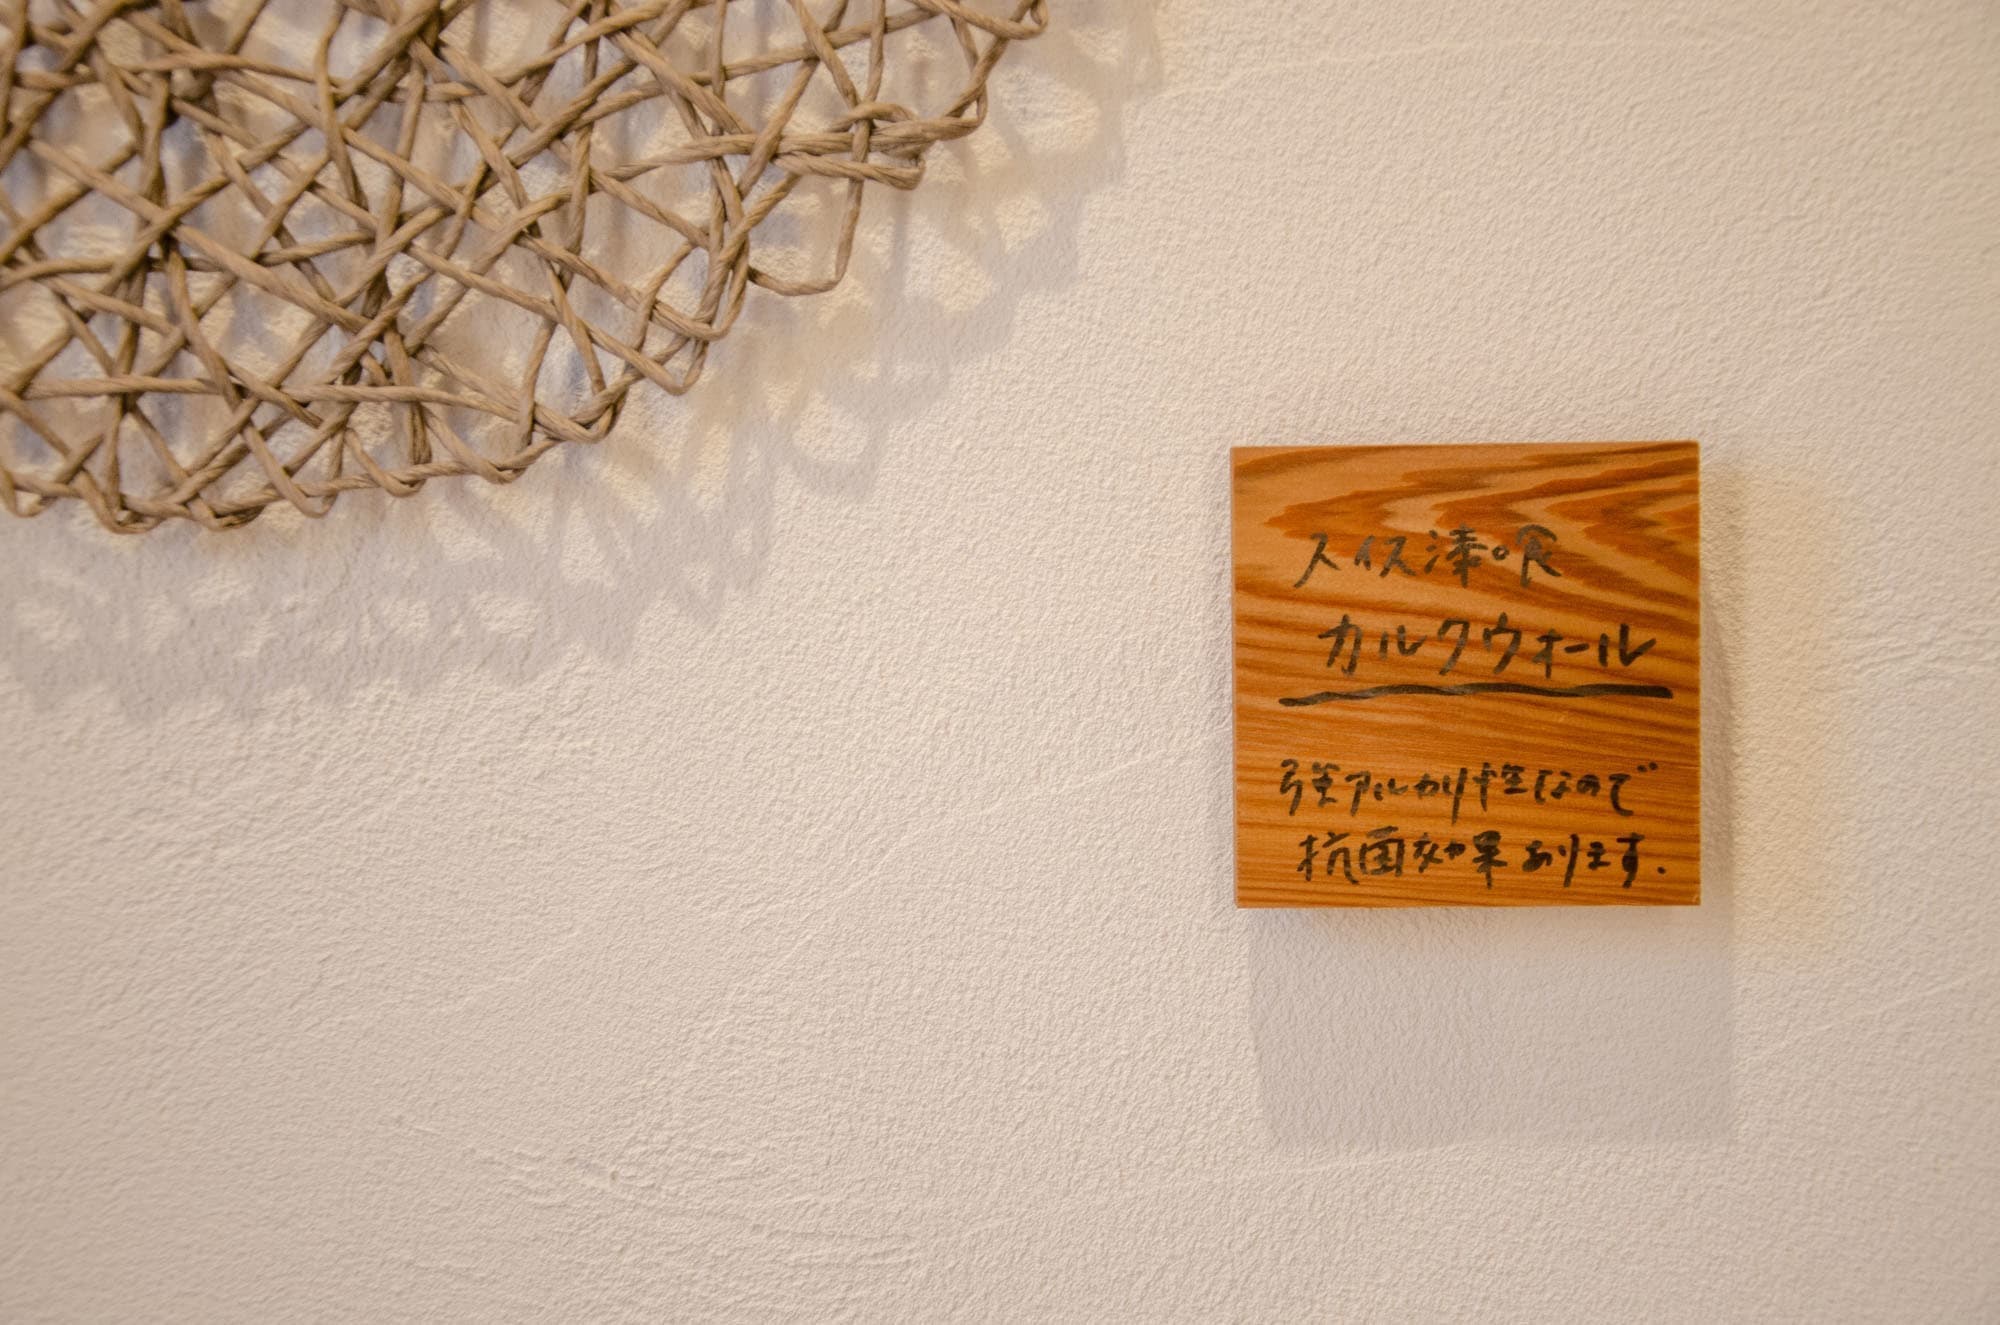 スイス漆喰
カルクウォール
強アルカリ性なので
抗菌効果あります.